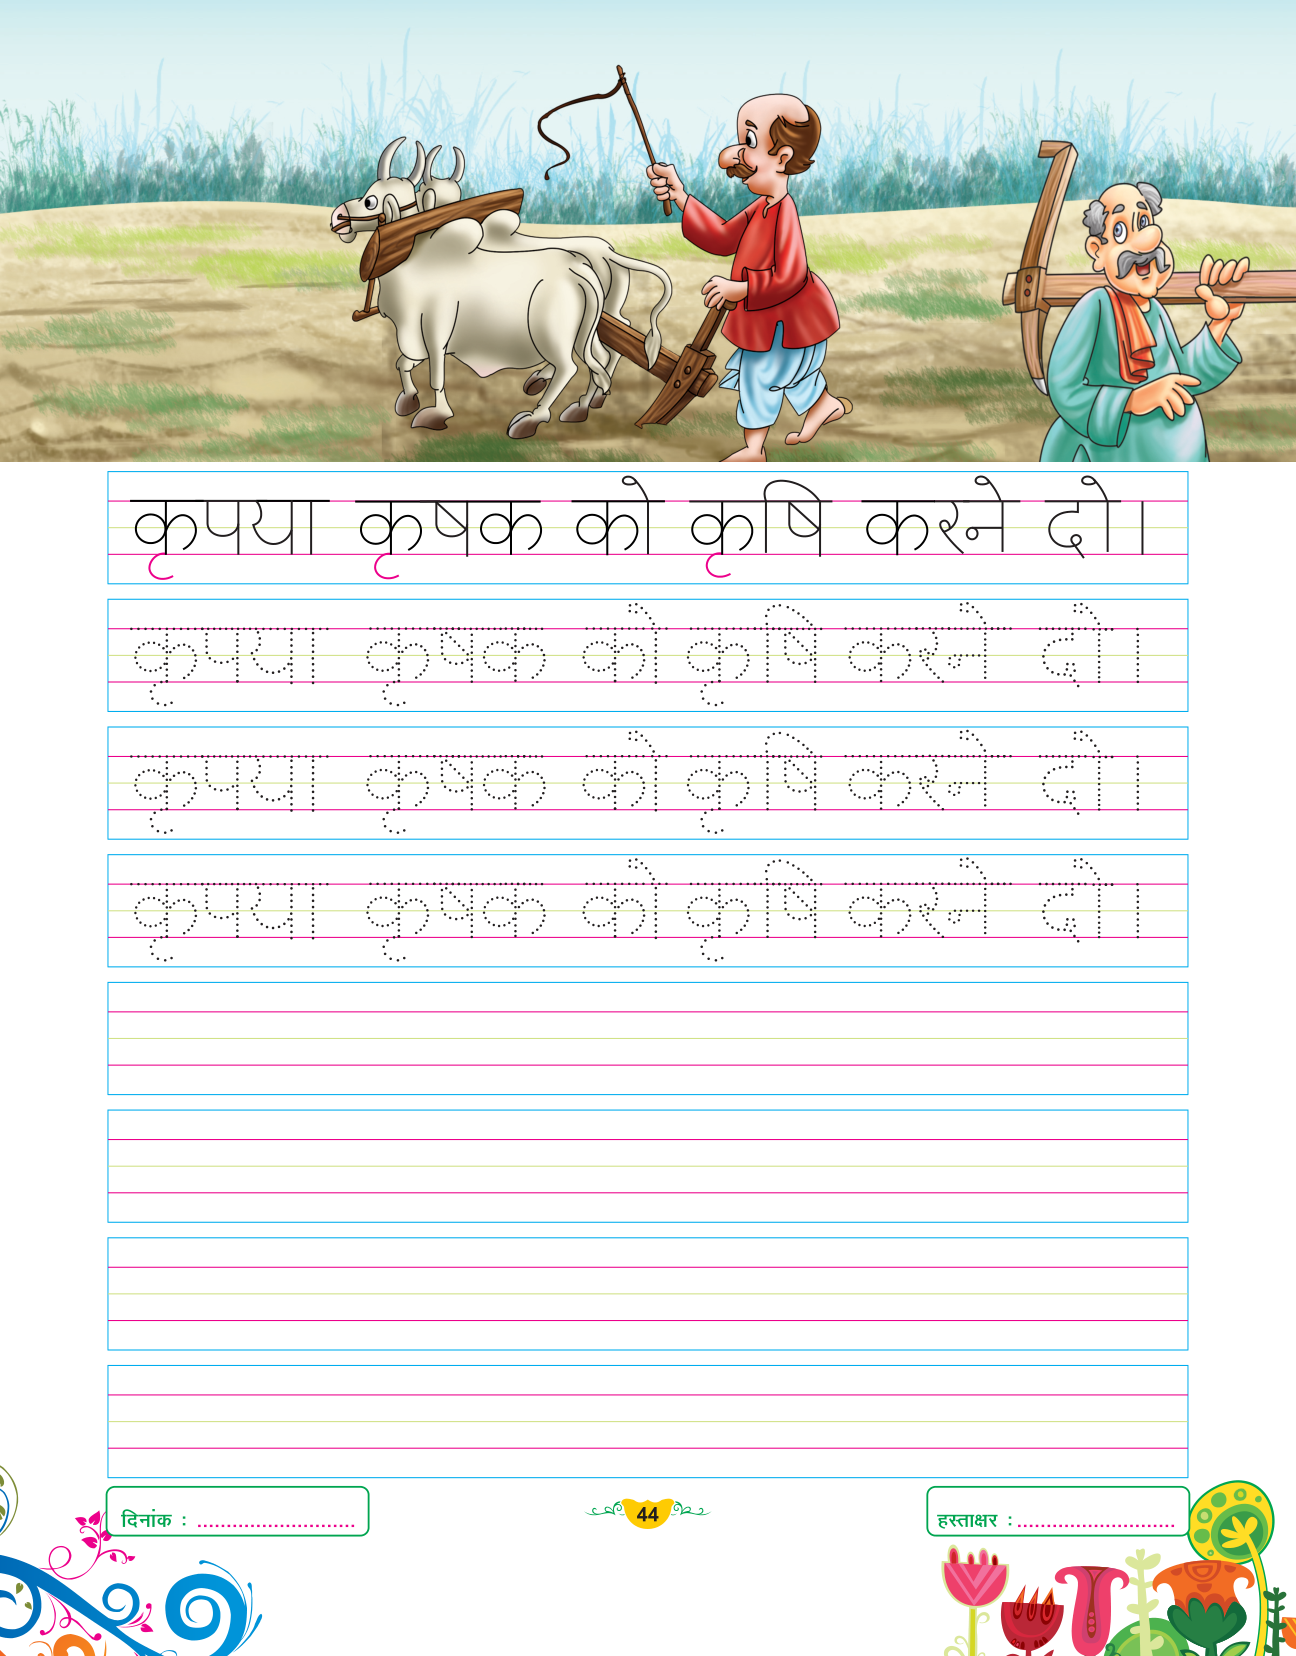 कृपया कृषक को कृषि करने दो।
कृपया कृषक को कृषि करने दो।
कृपया कृषक को कृषि करने दो।
कृपया कृषक को कृषि करने दो।
दिनांक : ............................
44
हस्ताक्षर : ............................